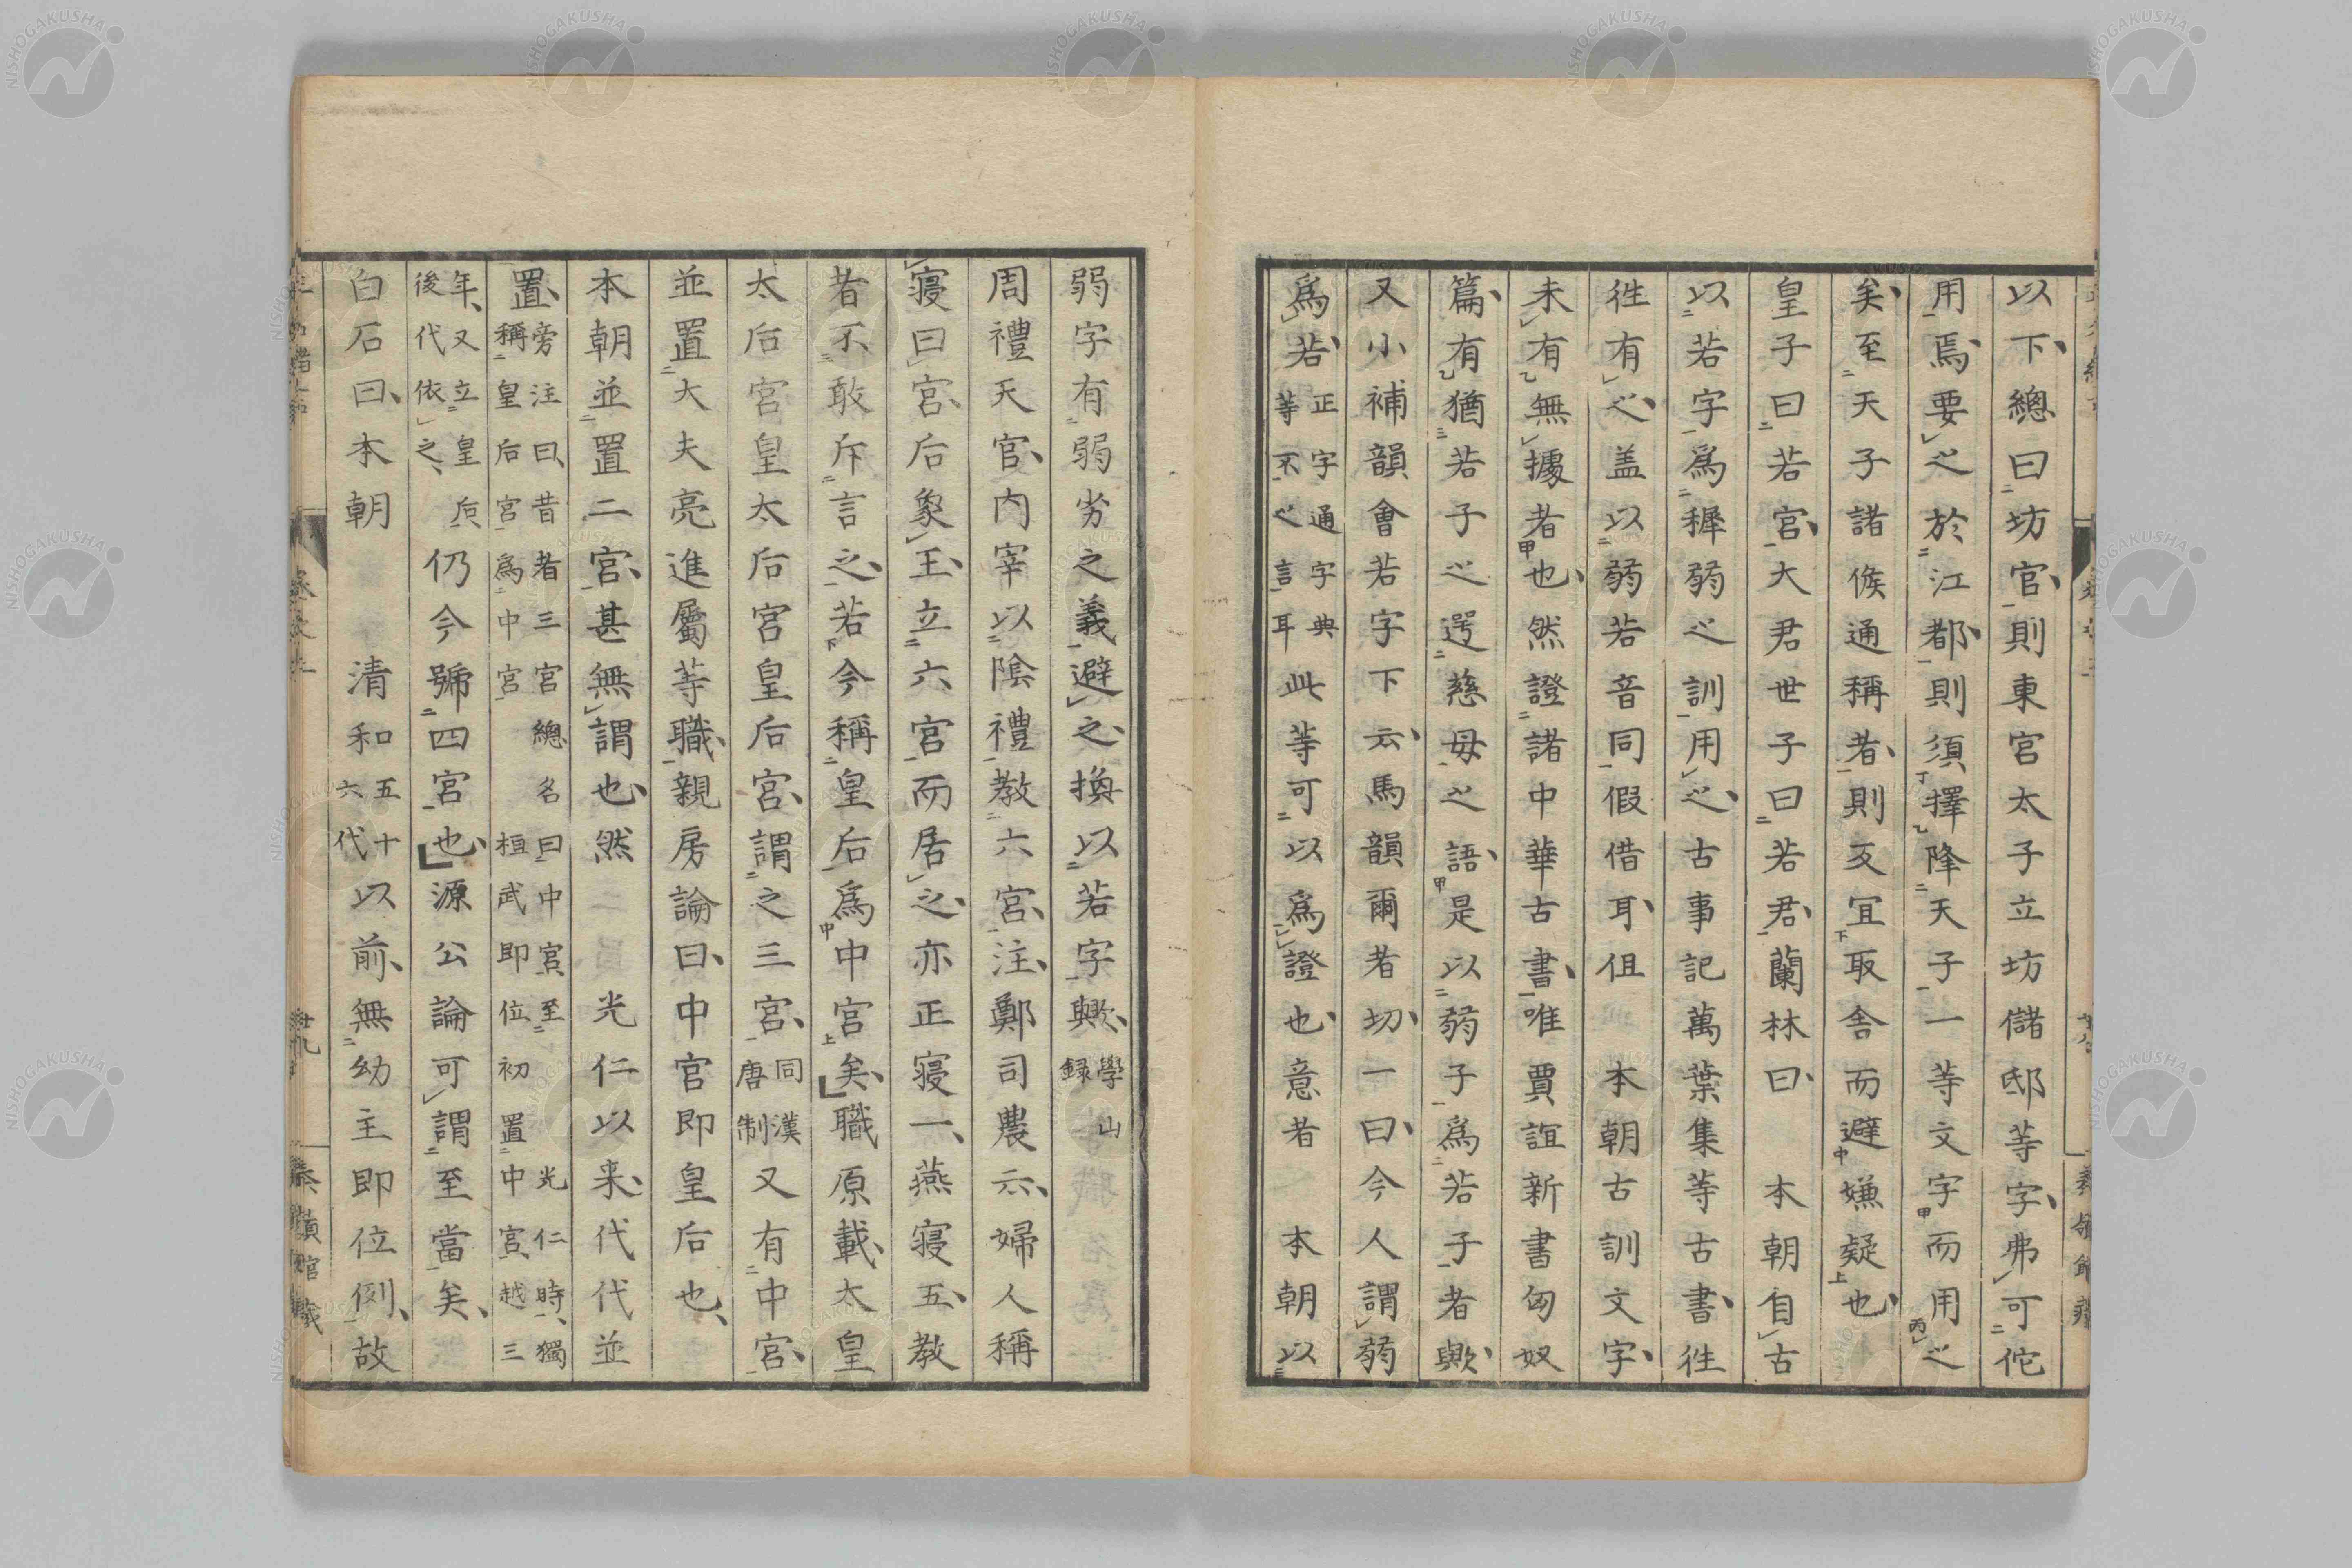 以下、總曰坊官、則東宮太子立坊儲邸等字、弗可佗
用焉、要之於江都、則須擇降天子一等文字而用之
矣、至天子諸候通稱者、則交宜取舍而避嫌疑也、
皇子曰若宮、大君世子曰若君、蘭林曰、　本朝自古
以若字爲穉弱之訓用之、古事記萬葉集等古書、徃
徃有之、盖以弱若音同假借耳、但　本朝古訓文字、
未有無據者也、然證諸中華古書、唯賈誼新書匈奴
篇、有猶若子之遌慈母之語、是以弱子爲若子者歟、
又小補韻會若字下云、馬韻爾者切、一曰、今人謂弱
爲若、正字通字典等不之言耳此等可以爲證也、意者　本朝以
弱字有弱劣之義避之、換以若字歟、學山録
周禮天官、内宰以陰禮教六宮、注、鄭司農云、婦人稱
寝曰宮、后象王、立六宮而居之、亦正寝一、燕寝五、教
者不敢斥言之、若今稱皇后爲中宮矣、職原載、太皇
太后宮皇太后宮皇后宮、謂之三宮、同漢唐制又有中宮、
並置大夫亮進屬等職、親房論曰、中官即皇后也、
本朝並置二宮、甚無謂也、然　光仁以来、代代並
置、旁注曰、昔者三宮總名曰中宮、至　光仁時、獨稱皇后宮爲中宮　桓武即位初置中宮、越三
年、又立皇后、後代依之、仍今號四宮也、源公論可謂至當矣、
白石曰、本朝　清和五十六代以前、無幼主即位例、故